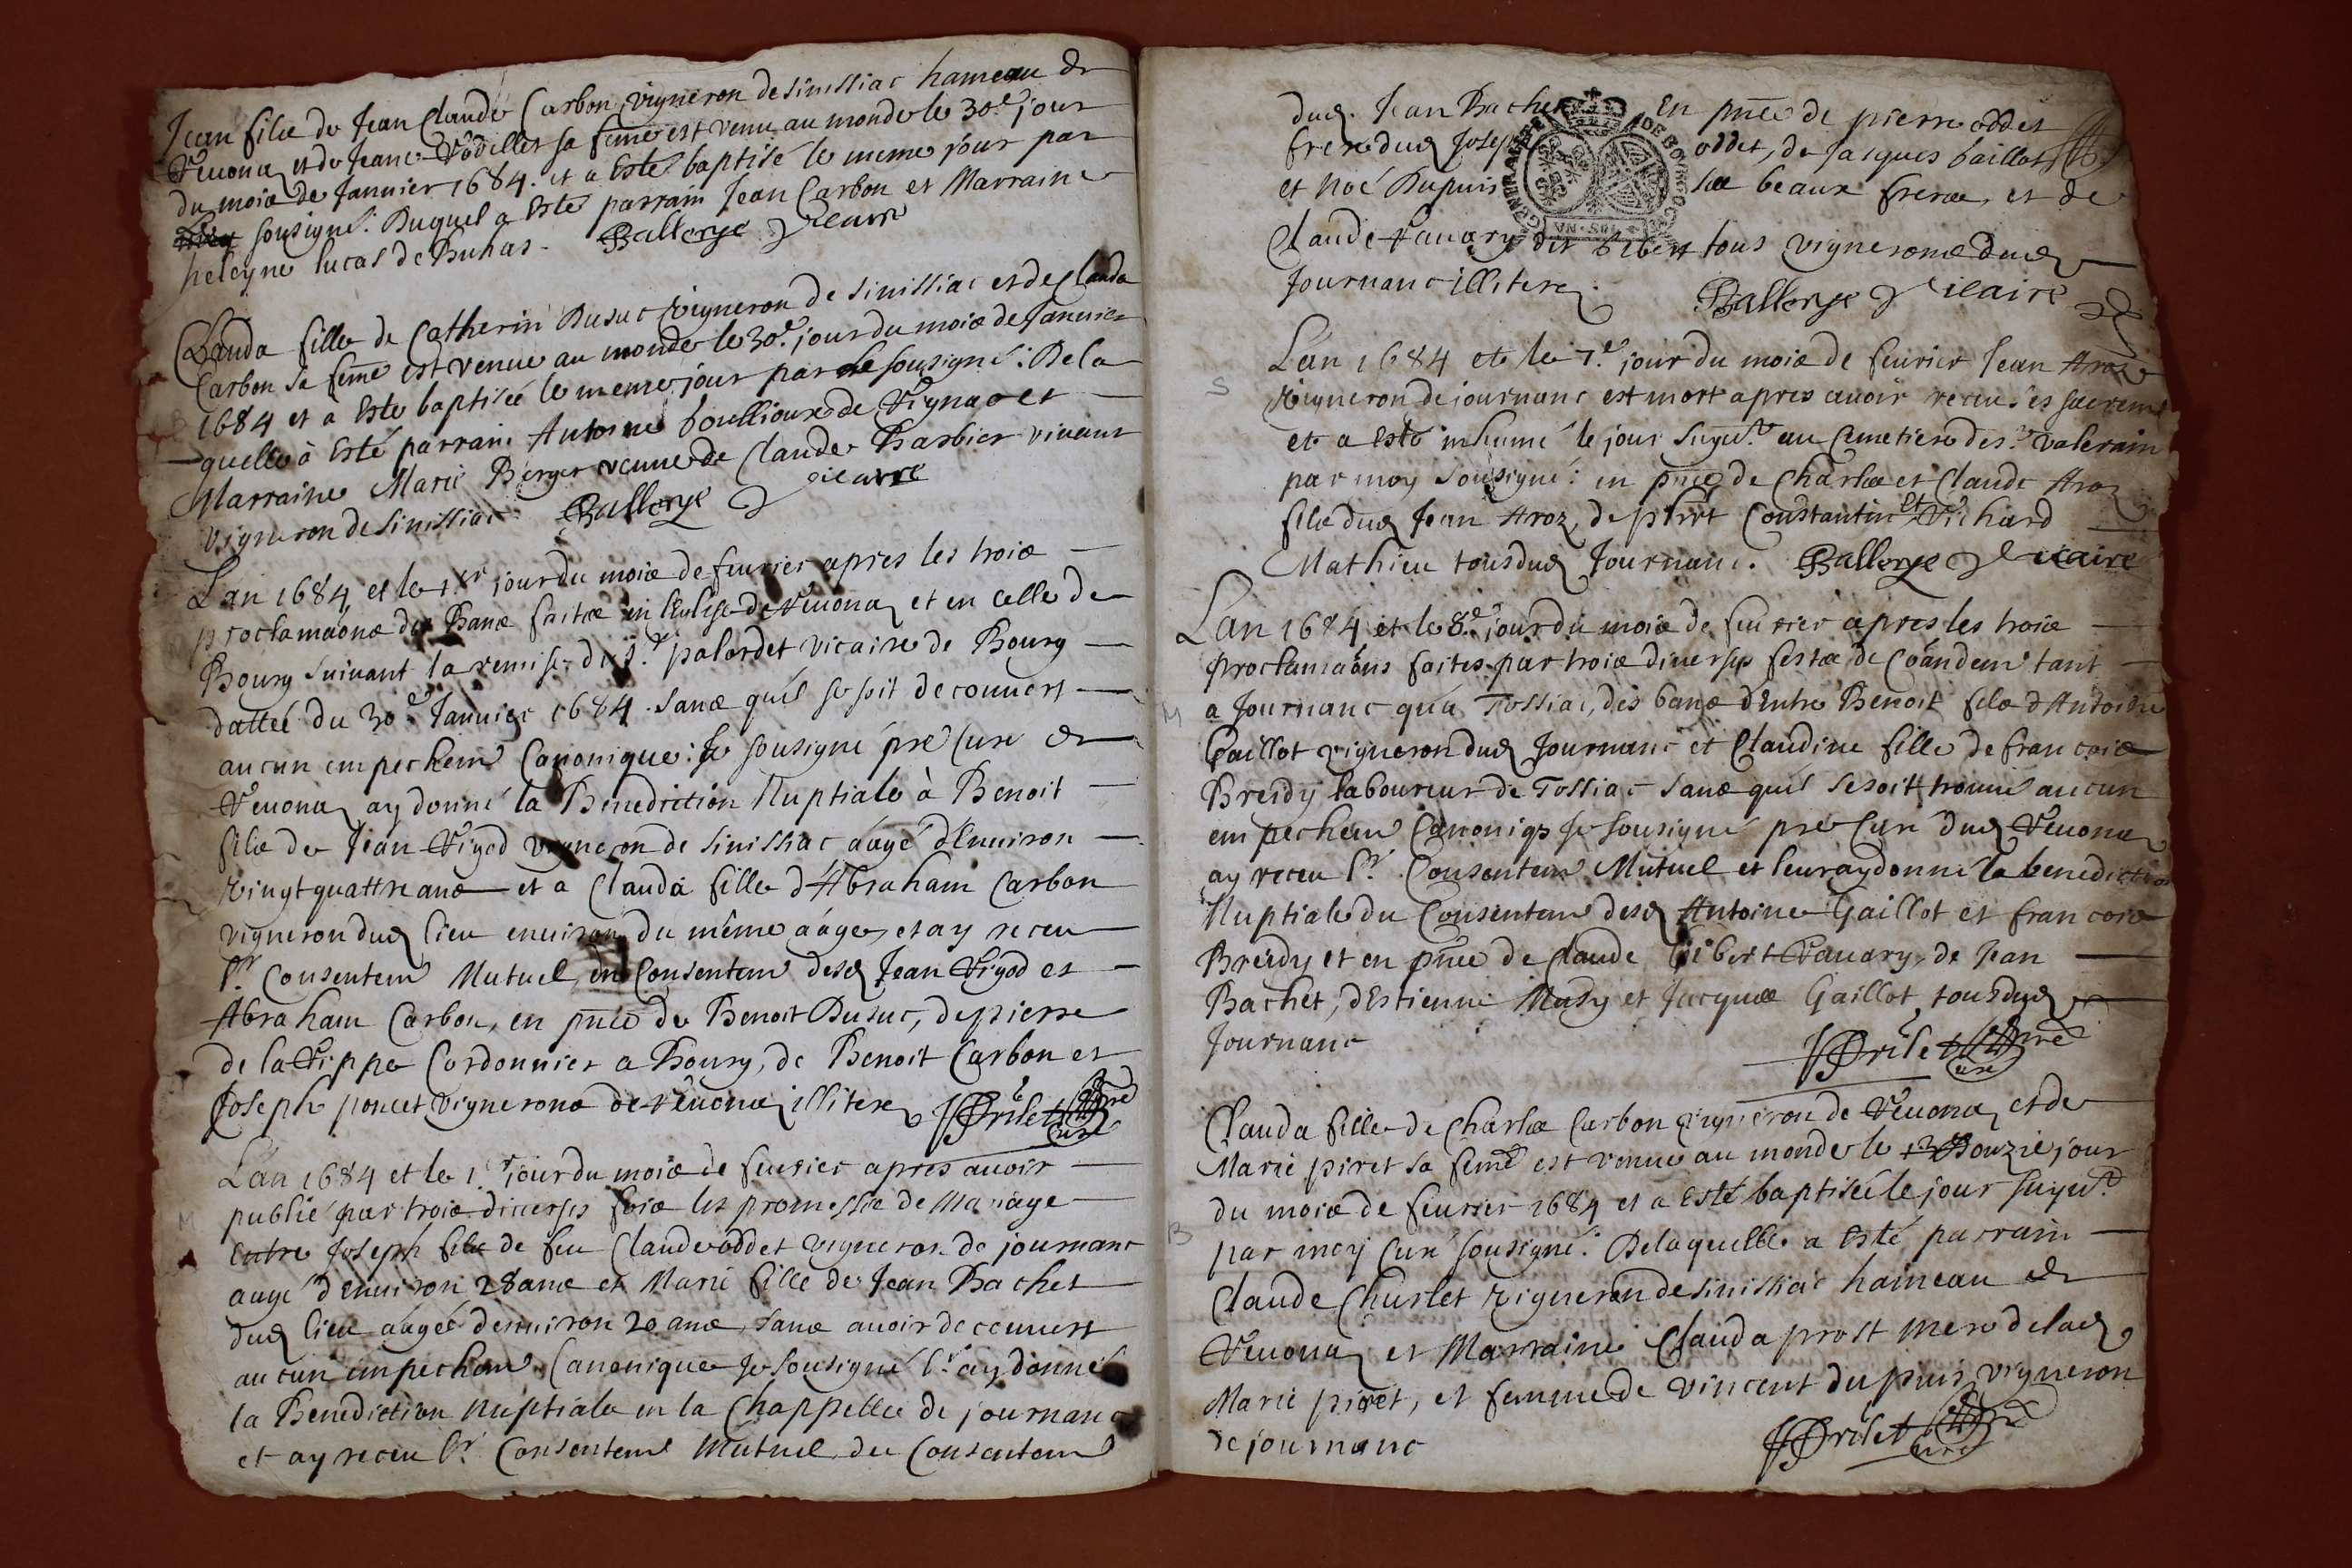 Jean filz de Jean Claude Carbon vigneron de sinissiac hameau de
Reuona et de Jeane sa feme est venu au monde le 30e jour
du moiz de Januier 1684. et a Esté baptisé le meme jour par
sousigné. Duquel a Esté parrain Jean Carbon et Marraine
heleyne lucas de Buhas. Ballorge Vicaire
Clauda fille de Catherin Dusuc vigneron de sinissiac et de Clauda
Carbon sa feme est venue au monde le 30e. jour du moiz de Januier
1684 et a Este baptiseé le meme jour par sousigné. De la
quelle à Esté parrain Antoine boullioux de Vignao et
Marraine Marie Berger veuue de Claude Barbier viuant
vigneron de sinissiac Ballorge Vicaire
Lan 1684 et le 1er jour du moiz de feurier apres les troiz
proclamaõnz des Banz faitz en leglise de Reuona et en celle de
Bourg suiuant la remise du Sr. palordet vicaire de Bourg
dattée du 30e Januier 1684. sanz quil se soit decouuert
aucun empechem Canonique: Je sousigné pre Cure de
Reuona ay donné la Benediction Nuptiale à Benoit
filz de Jean Vigod vigneron de sinissiac áagé d'Enuiron
vingt quattre anz et a Clauda fille d'Abraham Carbon
vigneron dud lieu enuiron du même áage, et ay receu
lr. Consentem Mutuel, du Consentem desd Jean Vigod et
Abraham Carbon, en pnce de Benoit Dusuc, de pierre
de la Cordonnier a Bourg, de Benoit Carbon et
Joseph poncet vigneronz de Reuona illiterez Brilet pre Cure
Lan 1684 et le 1er jour du moiz de feurier apres auoir
publié par troiz diuerses foiz les promessez de Mariage
Entre Joseph filz de feu Claude oddet vigneron de journanc
aagé d'Enuiron 28 anz et Marie fille de Jean Bachet
dud lieu áageé denuiron 20 anz, sanz auoir decouuert
aucun empechem Canonique Je sousigné lr. ay donné
la Benediction Nuptiale en la Chappelle de journanc
et ay receu lr. Consentem Mutuel du Consentem
dud. Jean Bachet En pnce de pierre oddet
frere dud Joseph oddet, de Jacques baillot
et Noé Dupuis sez beaux frerez, et de
Claude dit tous vigneronz dud
Journanc illiterez. Ballorge Vicaire
GENERALITE DE BOURGOGNE
VN SOL
Lan 1684 et le 7e. jour du moiz de feurier Jean Aroz
S
vigneron de journanc est mort apres auoir receu ses sacrem
et a Esté inhumé le jour suyut au Cemetiere de st valerain
par moy sousigné: en pnce de Charlez et Claude Aroz
filz dud Jean Aroz, de pierre Constantin et Richard
Mathieu tous dud Journanc. Ballorge Vicaire
Lan 1684 et le 8e. jour du moiz de feurier apres les troiz
proclamaõns faites par troiz diuerses festez de Cõandem tant
M
a Journanc qu'a Tossiac, des banz d'Entre Benoit filz d'Antoine
Gaillot vigneron dud Journanc et Claudine fille de francoiz
Breidy laboureur de Tossiac sanz quil se soit trouué aucun
empechem Canoniqe Je sousigné pre Curé dud Reuona
ay receu lr. Consentem Mutuel et leur ay donné la benediction
Nuptiale du Consentem desd Antoine Gaillot et francoiz
Breidy et en pnce de Claude Gibert de Jean
Bachet, d'Estienne Mady et Jacquez Gaillot, tous dud
Journanc Brilet pre Cure
Clauda fille de Charlez Carbon vigneron de Reuona, et de
Marie piret sa feme est venue au monde le jour
du moiz de feurier 1684 et a Esté baptiseé le jour suyut.
B
par moy Curé sousigné. De laquelle a Esté parrain
Claude Churlet vigneron de sinissiac hameau de
Reuona et Marraine Clauda prost mere de lad
Marie piret, et femme de vincent du puis vigneron
de journanc Brilet pre Cure